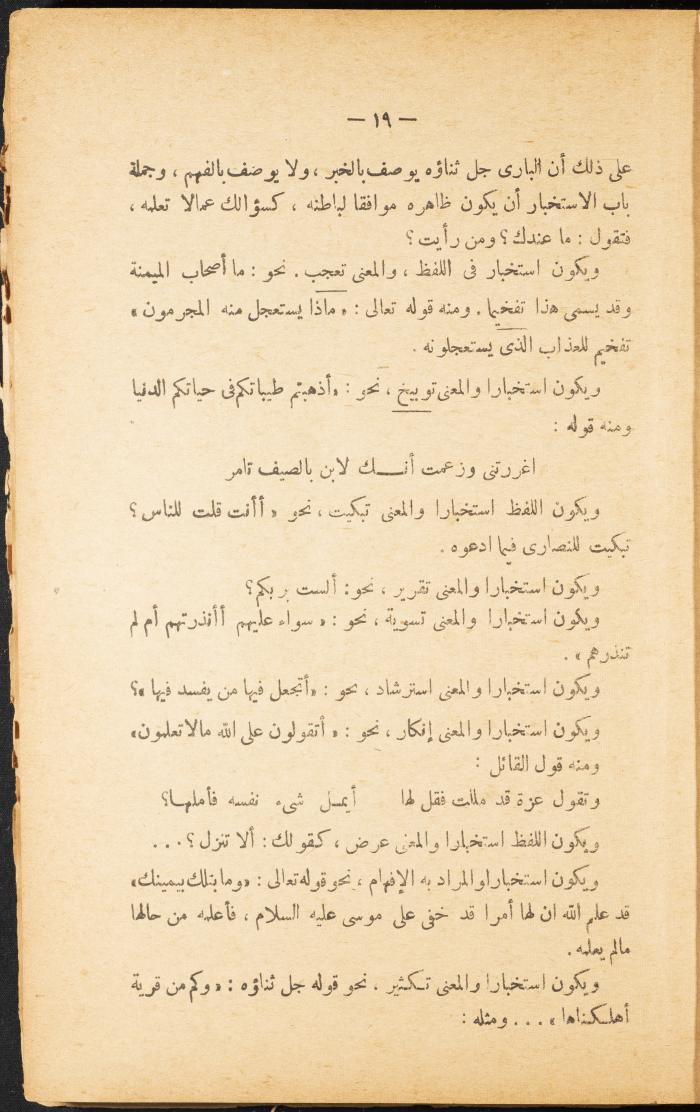 — ١٩ —
على ذلك أن البارى جل ثناؤه يوصف بالخبر ، ولا يوصف بالفهم ، وجملة
باب الاستخبار أن يكون ظاهره موافقا لباطنه ، كسؤالك عمالا تعلمه ،
فتقول : ما عندك ؟ ومن رأيت ؟
ويكون استخبار فى اللفظ ، والمعنى تعجب . نحو : ما أصحاب الميمنة
وقد يسمى هذا تفخيما . ومنه قوله تعالى : « ماذا يستعجل منه المجرمون »
تفخيم للعذاب الذى يستعجلونه .
ويكون استخبارا والمعنى توبيخ ، نحو : « أذهبتم طيباتكم فى حياتكم الدنيا
ومنه قوله :
اغررتنى وزعمت أنـــك لابن بالصيف تامر
ويكون اللفظ استخبارا والمعنى تبكيت ، نحو « أأنت قلت للناس ؟
تبكيت للنصارى فيما ادعوه .
ويكون استخبارا والمعنى تقرير ، نحو : ألست بربكم ؟
ويكون استخبارا والمعنى تسوية ، نحو : « سواء عليهم أأنذرتهم أم لم
تنذرهم » .
ويكون استخبارا والمعنى استرشاد ، نحو : « أتجعل فيها من يفسد فيها » ؟
ويكون استخبارا والمعنى إنكار ، نحو : « أتقولون على الله مالا تعلمون »
ومنه قول القائل :
وتقول عزة قد مللت فقل لها أيمـل شىء نفسه فأملهـا ؟
ويكون اللفظ استخبارا والمعنى عرض ، كقولك : ألا تنزل ؟ . . .
ويكون استخبارا والمراد به الإفهام ، نحو قوله تعالى : « وما تلك بيمينك »
قد علم الله ان لها أمرا قد خفى على موسى عليه السلام ، فأعلمه من حالها
مالم يعلمه .
ويكون استخبارا والمعنى تـكثير ، نحو قوله جل ثناؤه : « وكم من قرية
أهلـكناها » . . . ومثله :